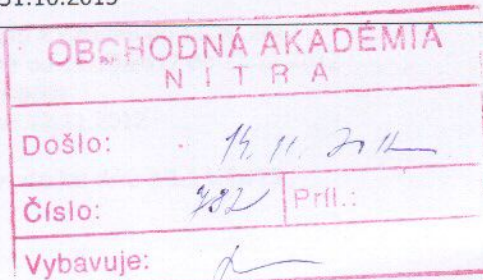 31.10.2013
OBCHODNÁ AKADÉMIA
NITRA
Došlo: 14. 11. 2012
Číslo: 782 Príl.:
Vybavuje: